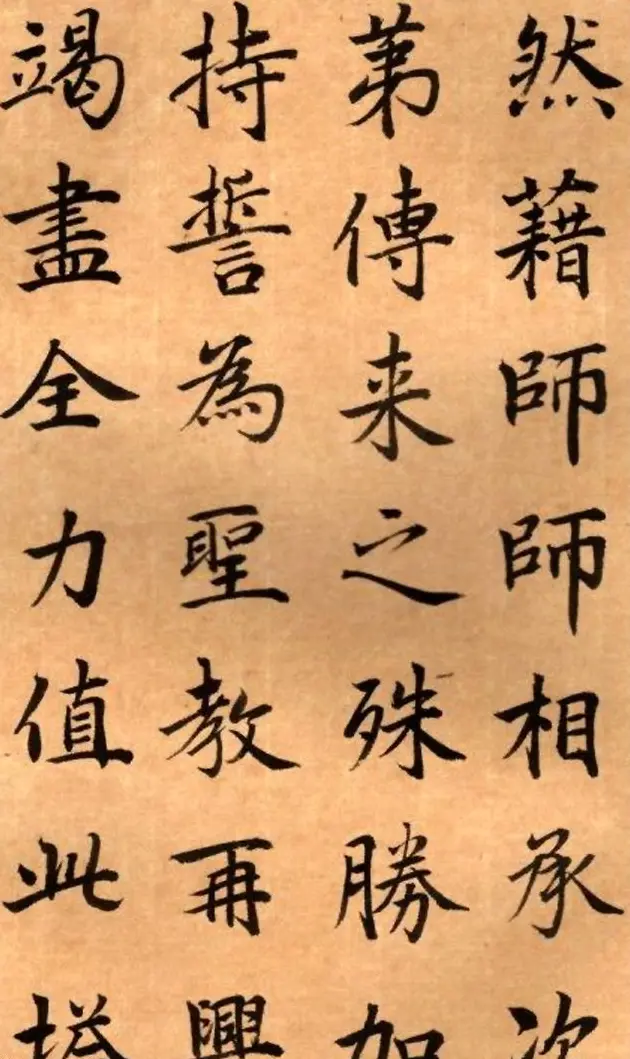 然藉師師相承次
苐傳来之殊勝加
持誓為聖教再興
竭盡全力值此塔